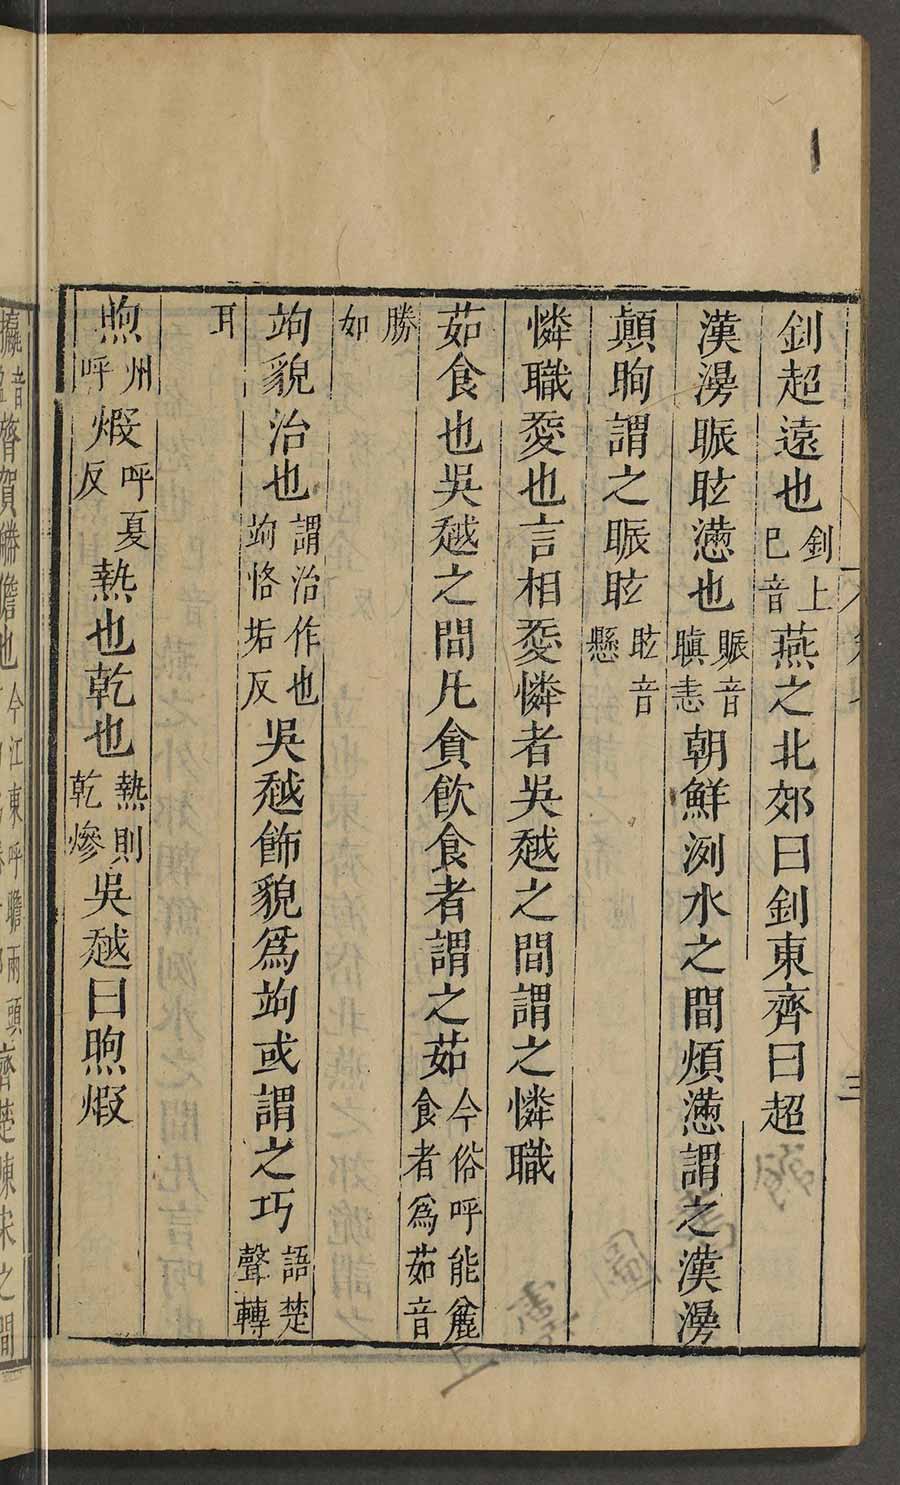 釗超遠也釗上已音燕之北郊曰釗東齊曰超
漢漫眠眩懣也眠音瞋恚朝鮮洌水之間煩懣謂之漢漫
顛眴謂之眠眩眩音懸
憐職愛也言相愛憐者吳越之間謂之憐職
茹食也吳越之間凡貪飲食者謂之茹今俗呼能麄食者爲茹音
勝如
竘貌治也謂治作也竘恪垢反吳越飾貌爲竘或謂之巧語楚聲轉
耳
煦州呼煆呼夏反熱也乾也熱則乾㿊吳越曰煦煆
音齊賀滕儋也今江東呼擔兩頭齊楚陳宋之間